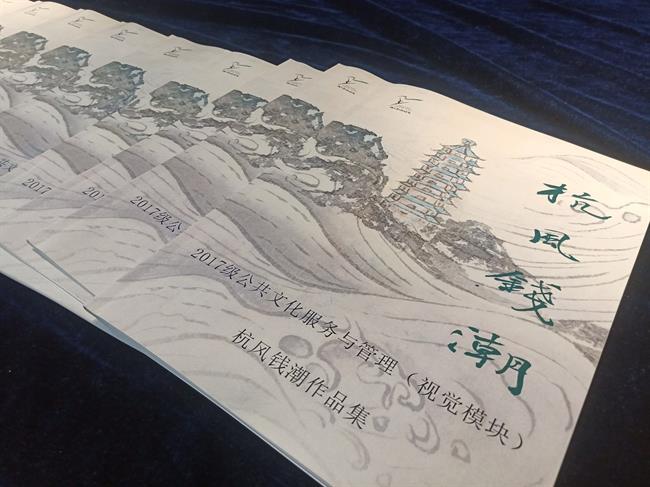 杭风錢潮
2017级公共文化服务与管理（视觉模块）
杭风钱潮作品集
2017级公
201
2017